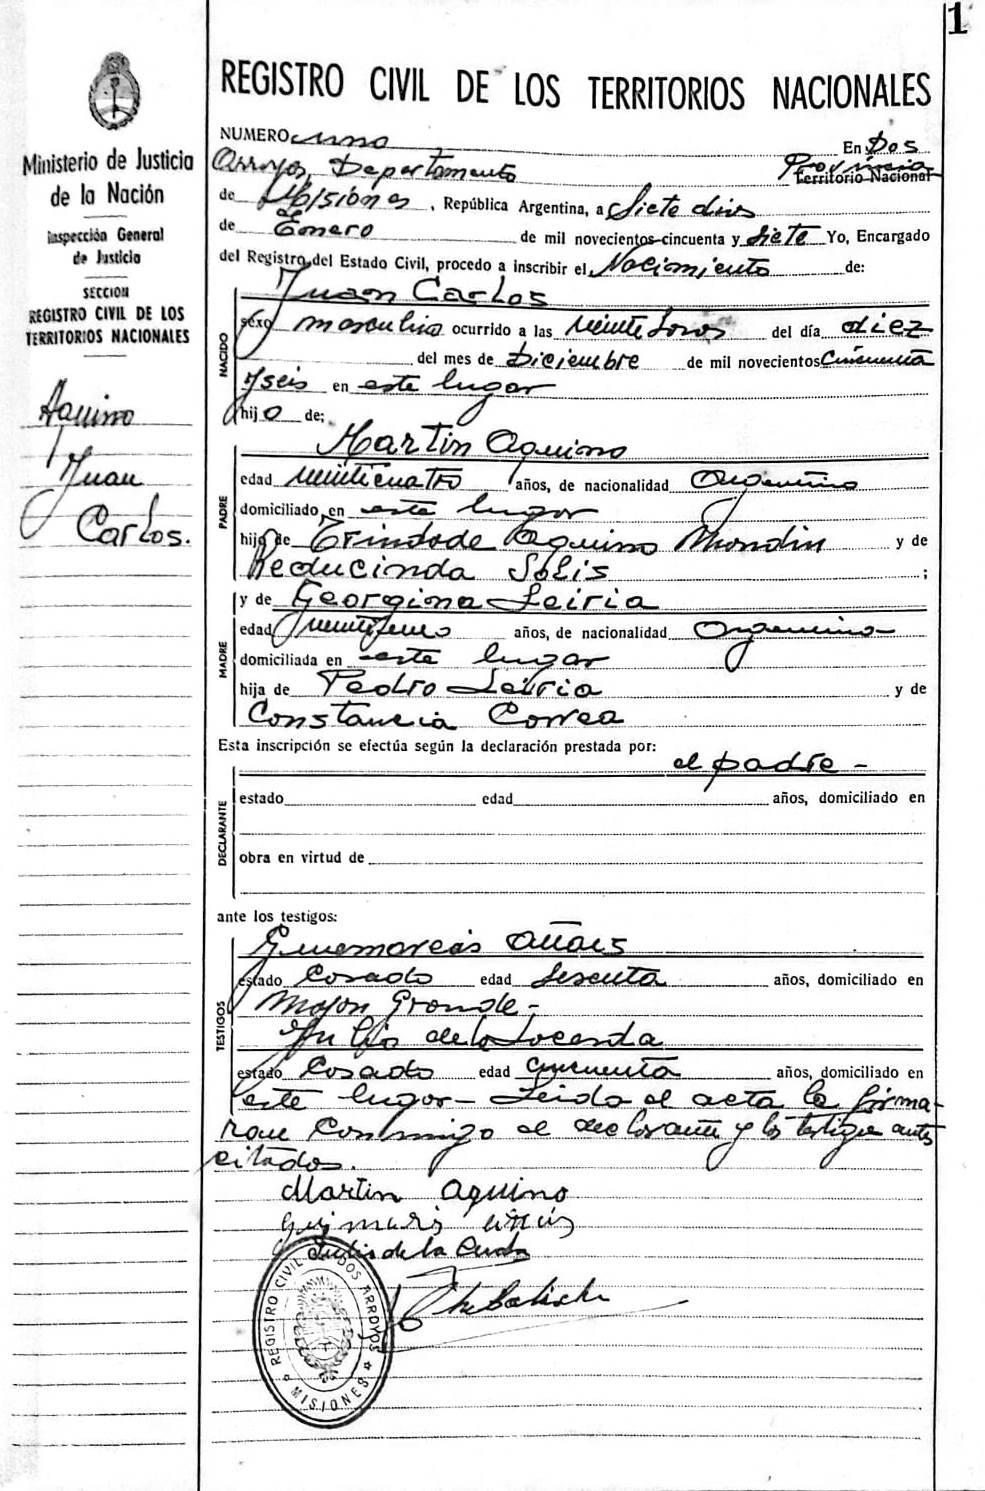 1
Ministerio de Justicia
de la Nación
Inspección General
de Justicia
SECCION
REGISTRO CIVIL DE LOS
TERRITORIOS NACIONALES
Aquino
Juan
Carlos.
REGISTRO CIVIL DE LOS TERRITORIOS NACIONALES
NUMERO uno En Dos
Arroyos, Departamento Provincia Territorio Nacional
de Misiones, República Argentina, a Siete dias
de Enero de mil novecientos cincuenta y Siete Yo, Encargado
del Registro del Estado Civil, procedo a inscribir el Nacimiento de:
NACIDO
Juan Carlos
sexo masculino ocurrido a las veinte horas del día diez
del mes de Diciembre de mil novecientos Cincuenta
y seis en este lugar
hijo de:
PADRE
Martin Aquino
edad veinticuatro años, de nacionalidad Argentino
domiciliado en este lugar
hijo de Trindade Aquino y de
Reducinda Solis ;
MADRE
y de Georgina Leiria
edad años, de nacionalidad Argentina
domiciliada en este lugar
hija de Pedro Leiria y de
Constancia Correa
Esta inscripción se efectúa según la declaración prestada por:
DECLARANTE
el padre -
estado edad años, domiciliado en
obra en virtud de
ante los testigos:
TESTIGOS
estado Casado edad Sesenta años, domiciliado en
Mojon Grande -
Julio de la
estado Casado edad cincuenta años, domiciliado en
este lugar - Leida el acta la firma-
ron conmigo el declarante y los testigos antes
citados.
Martin Aquino
Julio de la
REGISTRO CIVIL DOS ARROYOS
MISIONES